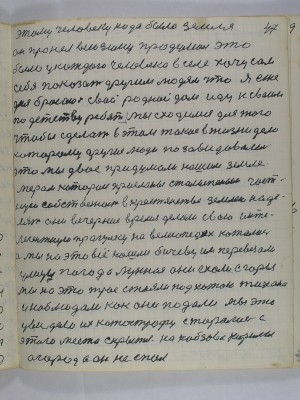 этому человеку надо было земля 47
он провел вподину придумал это
было у каждого человека в селе хочу сам
себя показат другим людям что я еже
бросаю свой родной дом иду к своим
по детству ребят мы сходимся для того
чтобы сделат в этом такое в жизни дело
которому другие люди позавидовали
это мы двое придумали нашим земле
мерам которым присланы сталыпаным част
ную собственост в крестьянство землю наде
лят они вечернее время делали свою инте
лигентную прогулку на велосепедах катались
а мы на это всё нашли бичеву им перевязали
улицу погода лунная они ехали с горы
мы на это туго стояли под хатою тихонько
и наблюдали как они падали мы это
увидали их катострофу старались с
этого места скрытся на
огорода он не спал